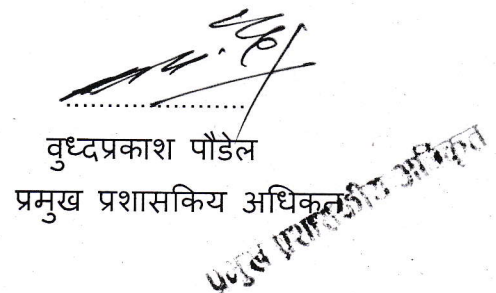 वुध्दप्रकाश पौडेल
प्रमुख प्रशासकिय अधिकृत
प्रमुख प्रशासकीय अधिकृत